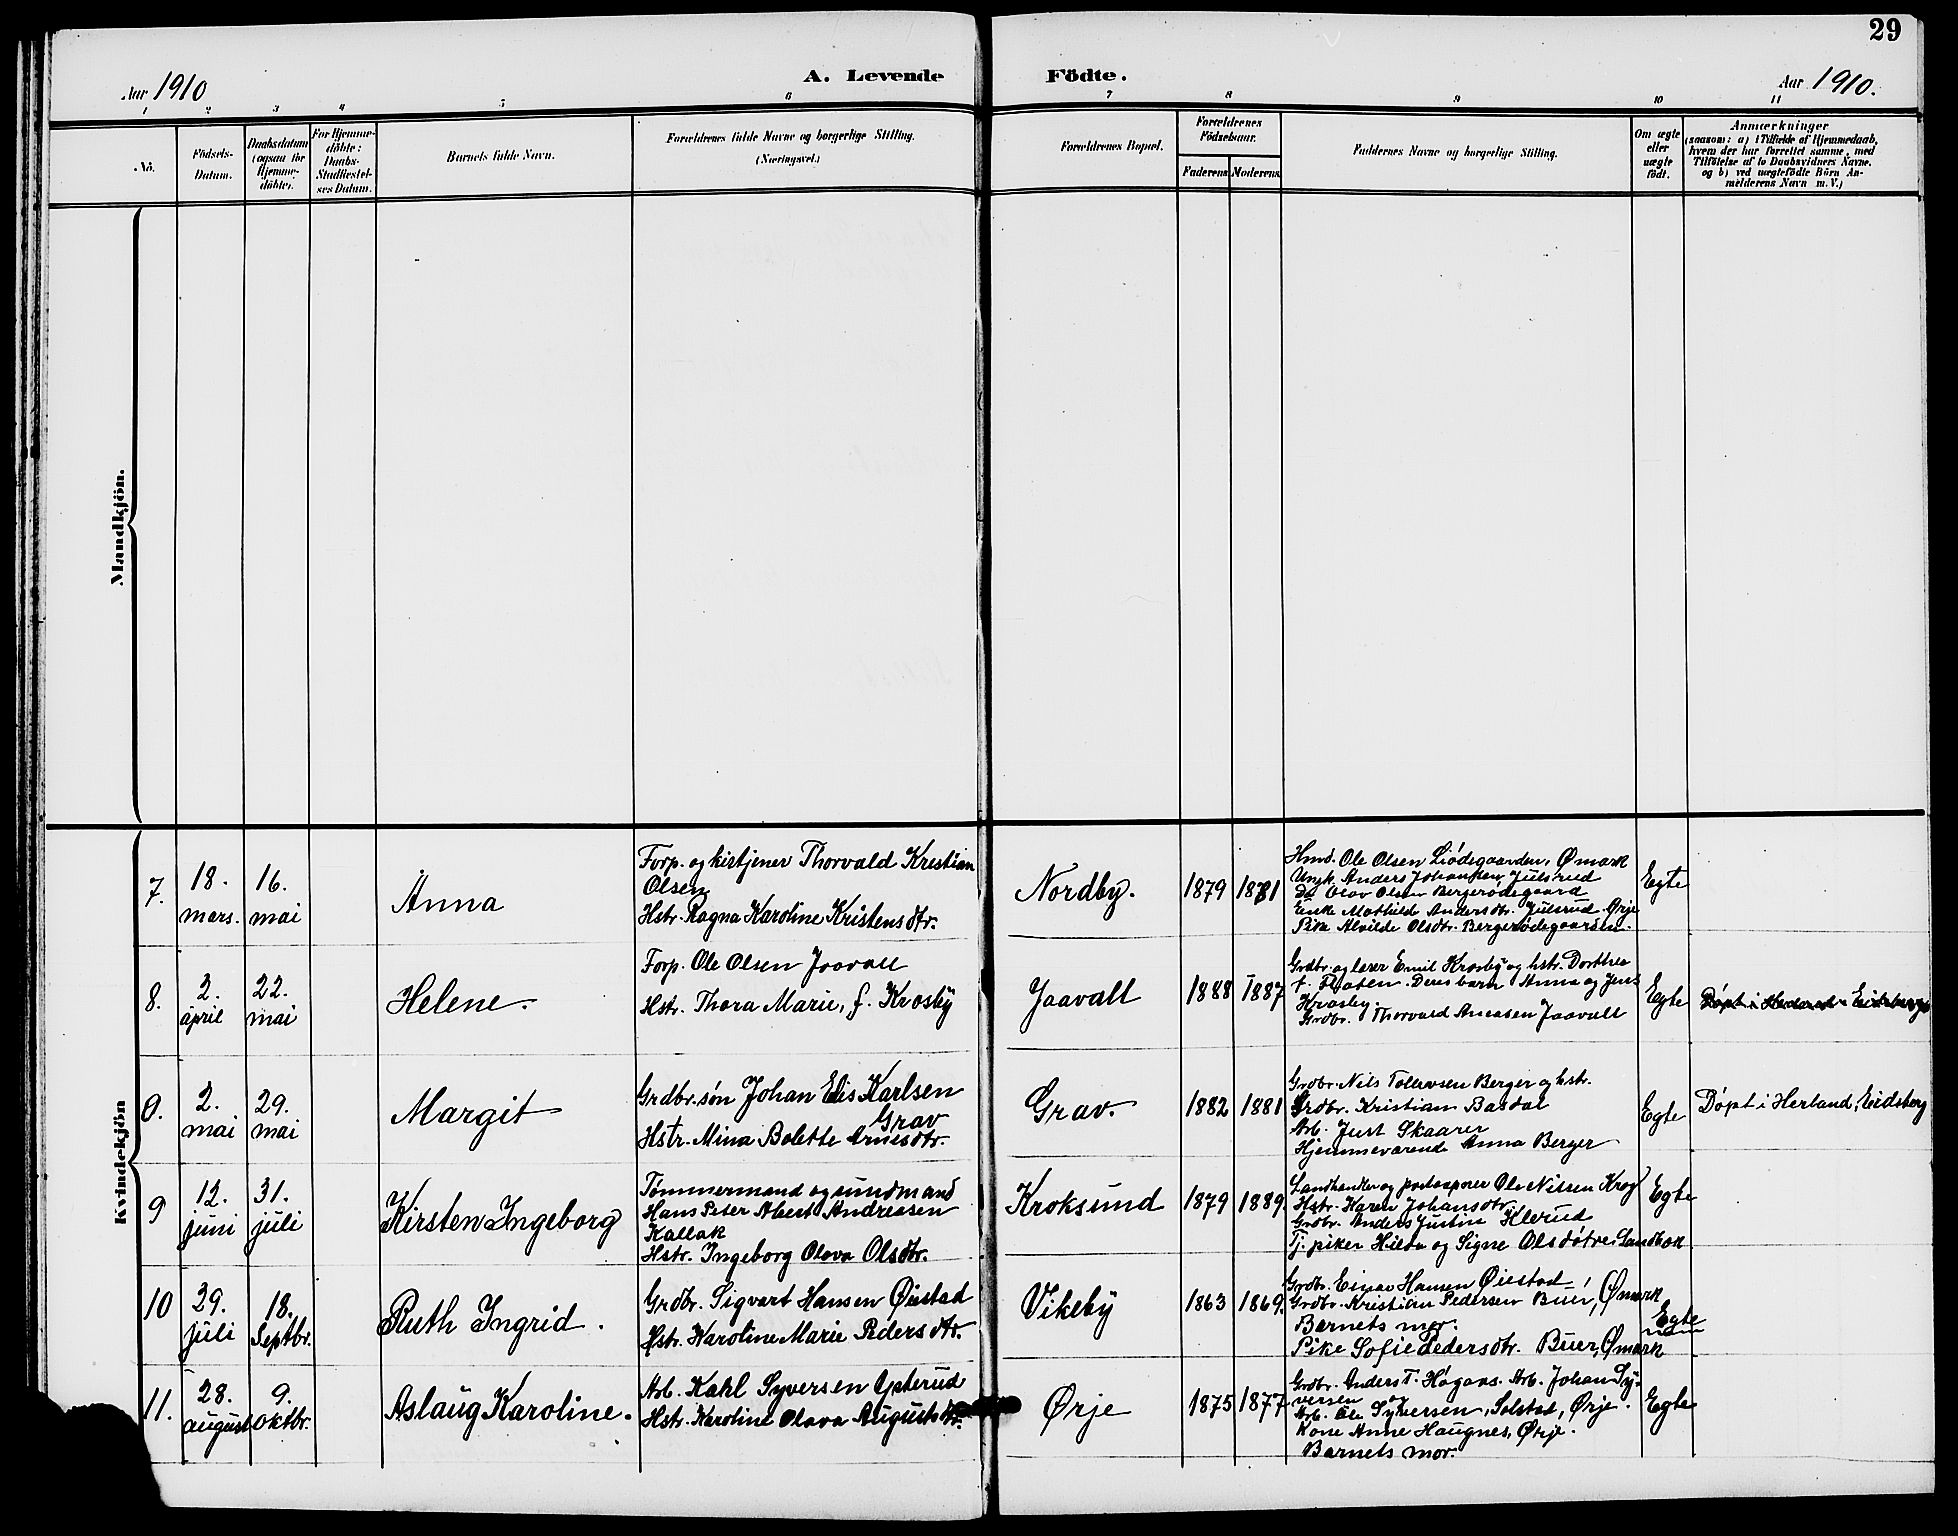 29
Aar 1910
A. Levende Födte.
Aar 1910.
1 2 3 4 5 6 7 8 9 10 11
No.
Födsels-
Datum.
Daabsdatum
(ogsaa for
Hjemme-
döbte).
For Hjemme-
döbte:
Daabs-
Stadfæstel-
ses Datum.
Barnets fulde Navn.
Forældrenes fulde Navne og borgerlige Stilling.
(Næringsvei.)
Forældrenes Bopæl.
Forældrenes
Födselsaar.
Faderens
Moderens.
Faddernes Navne og borgerlige Stilling.
Om ægte
eller
uægte
födt.
Anmærkninger
(saasom: a) i Tilfælde af Hjemmedaab,
hvem der har forrettet samme, med
Tilföielse af to Daabsvidners Navne.
og b) ved uægtefödte Börn An-
melderens Navn m. V.)
Mandkjön.
Kvindekjön
7.
18.
mars.
16.
mai
Anna
Forp. og kistjener Thorvald Kristian
Olsen
Hstr. Ragna Karoline Kristensdtr.
Nordby.
1879
1881
Hmd. Ole Olsen Liödegaarden, Ømark
Ungk. Anders Johansen Julsrud
Do Olav Olsen Bergerødegaard
Enke Mathilde Andersdtr. Julsrud Ørje
Pike Alvilde Olsdtr. Bergerødegaarden.
Egte
8.
2.
april
22.
mai
Helene.
Forp. Ole Olsen Jaavall
Hstr. Thora Marie, f. Krosby
Jaavall
1888
1887
Grdbr. og lærer Emil Krosby og hstr. Dorthea
f. Fladen. Deres barn Anna og Jens
Krosby.
Grdbr. Thorvald Aneasen Jaavall
Egte
Døpt i Herland Eidsberg
9.
2.
mai
29.
mai
Margit
Grdbr. søn Johan Elis Karlsen
Grav
Hstr. Mina Bolette Arnesdtr.
Grav.
1882
1881
Grdbr. Nils Tollevsen Berger og hstr.
Grdbr. Kristian Basdal
Arb. Just Skaarer
Hjemmeværende Anna Berger
Egte
Døpt i Herland, Eidsberg
9
12.
juni
31.
juli
Kirsten Ingeborg
Tømmermand og sundmand
Hans Peter Albert Andreasen
Kallak
Hstr. Ingeborg Olava Olsdtr.
Kroksund
1879
1889.
Landhandler og postaapner Ole Nilsen Krog
Hstr. Karen Johansdtr.
Grdbr. Anders Justin Klerud
Tj. piker Hilda og Signe Olsdøtre Sandbæk
Egte
10
29.
juli
18.
Septbr.
Ruth Ingrid.
Grdbr. Sigvart Hansen Øiestad
Hstr. Karoline Marie Pedersdtr.
Vikeby
1863
1869.
Grdbr. Einar Hansen Øiestad
Grdbr. Kristian Pedersen Buer, Ømark
Barnets mor.
Pike Sofie Pedersdtr. Buer, Ømark
Egte
11.
28.
august
9.
Oktbr.
Aslaug Karoline.
Arb. Kahl Syversen Ysterud
Hstr. Karoline Olava Augustsdtr.
Ørje
1875
1877
Grdbr. Anders T. Høgaas. Arb. Johan Sy-
versen og
Arb. Ole Syversen, Solstad, Ørje.
Kone Anne Haugnes, Ørje.
Barnets mor.
Egte